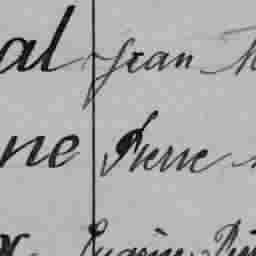 al Jean
ne Pierre
Eugène